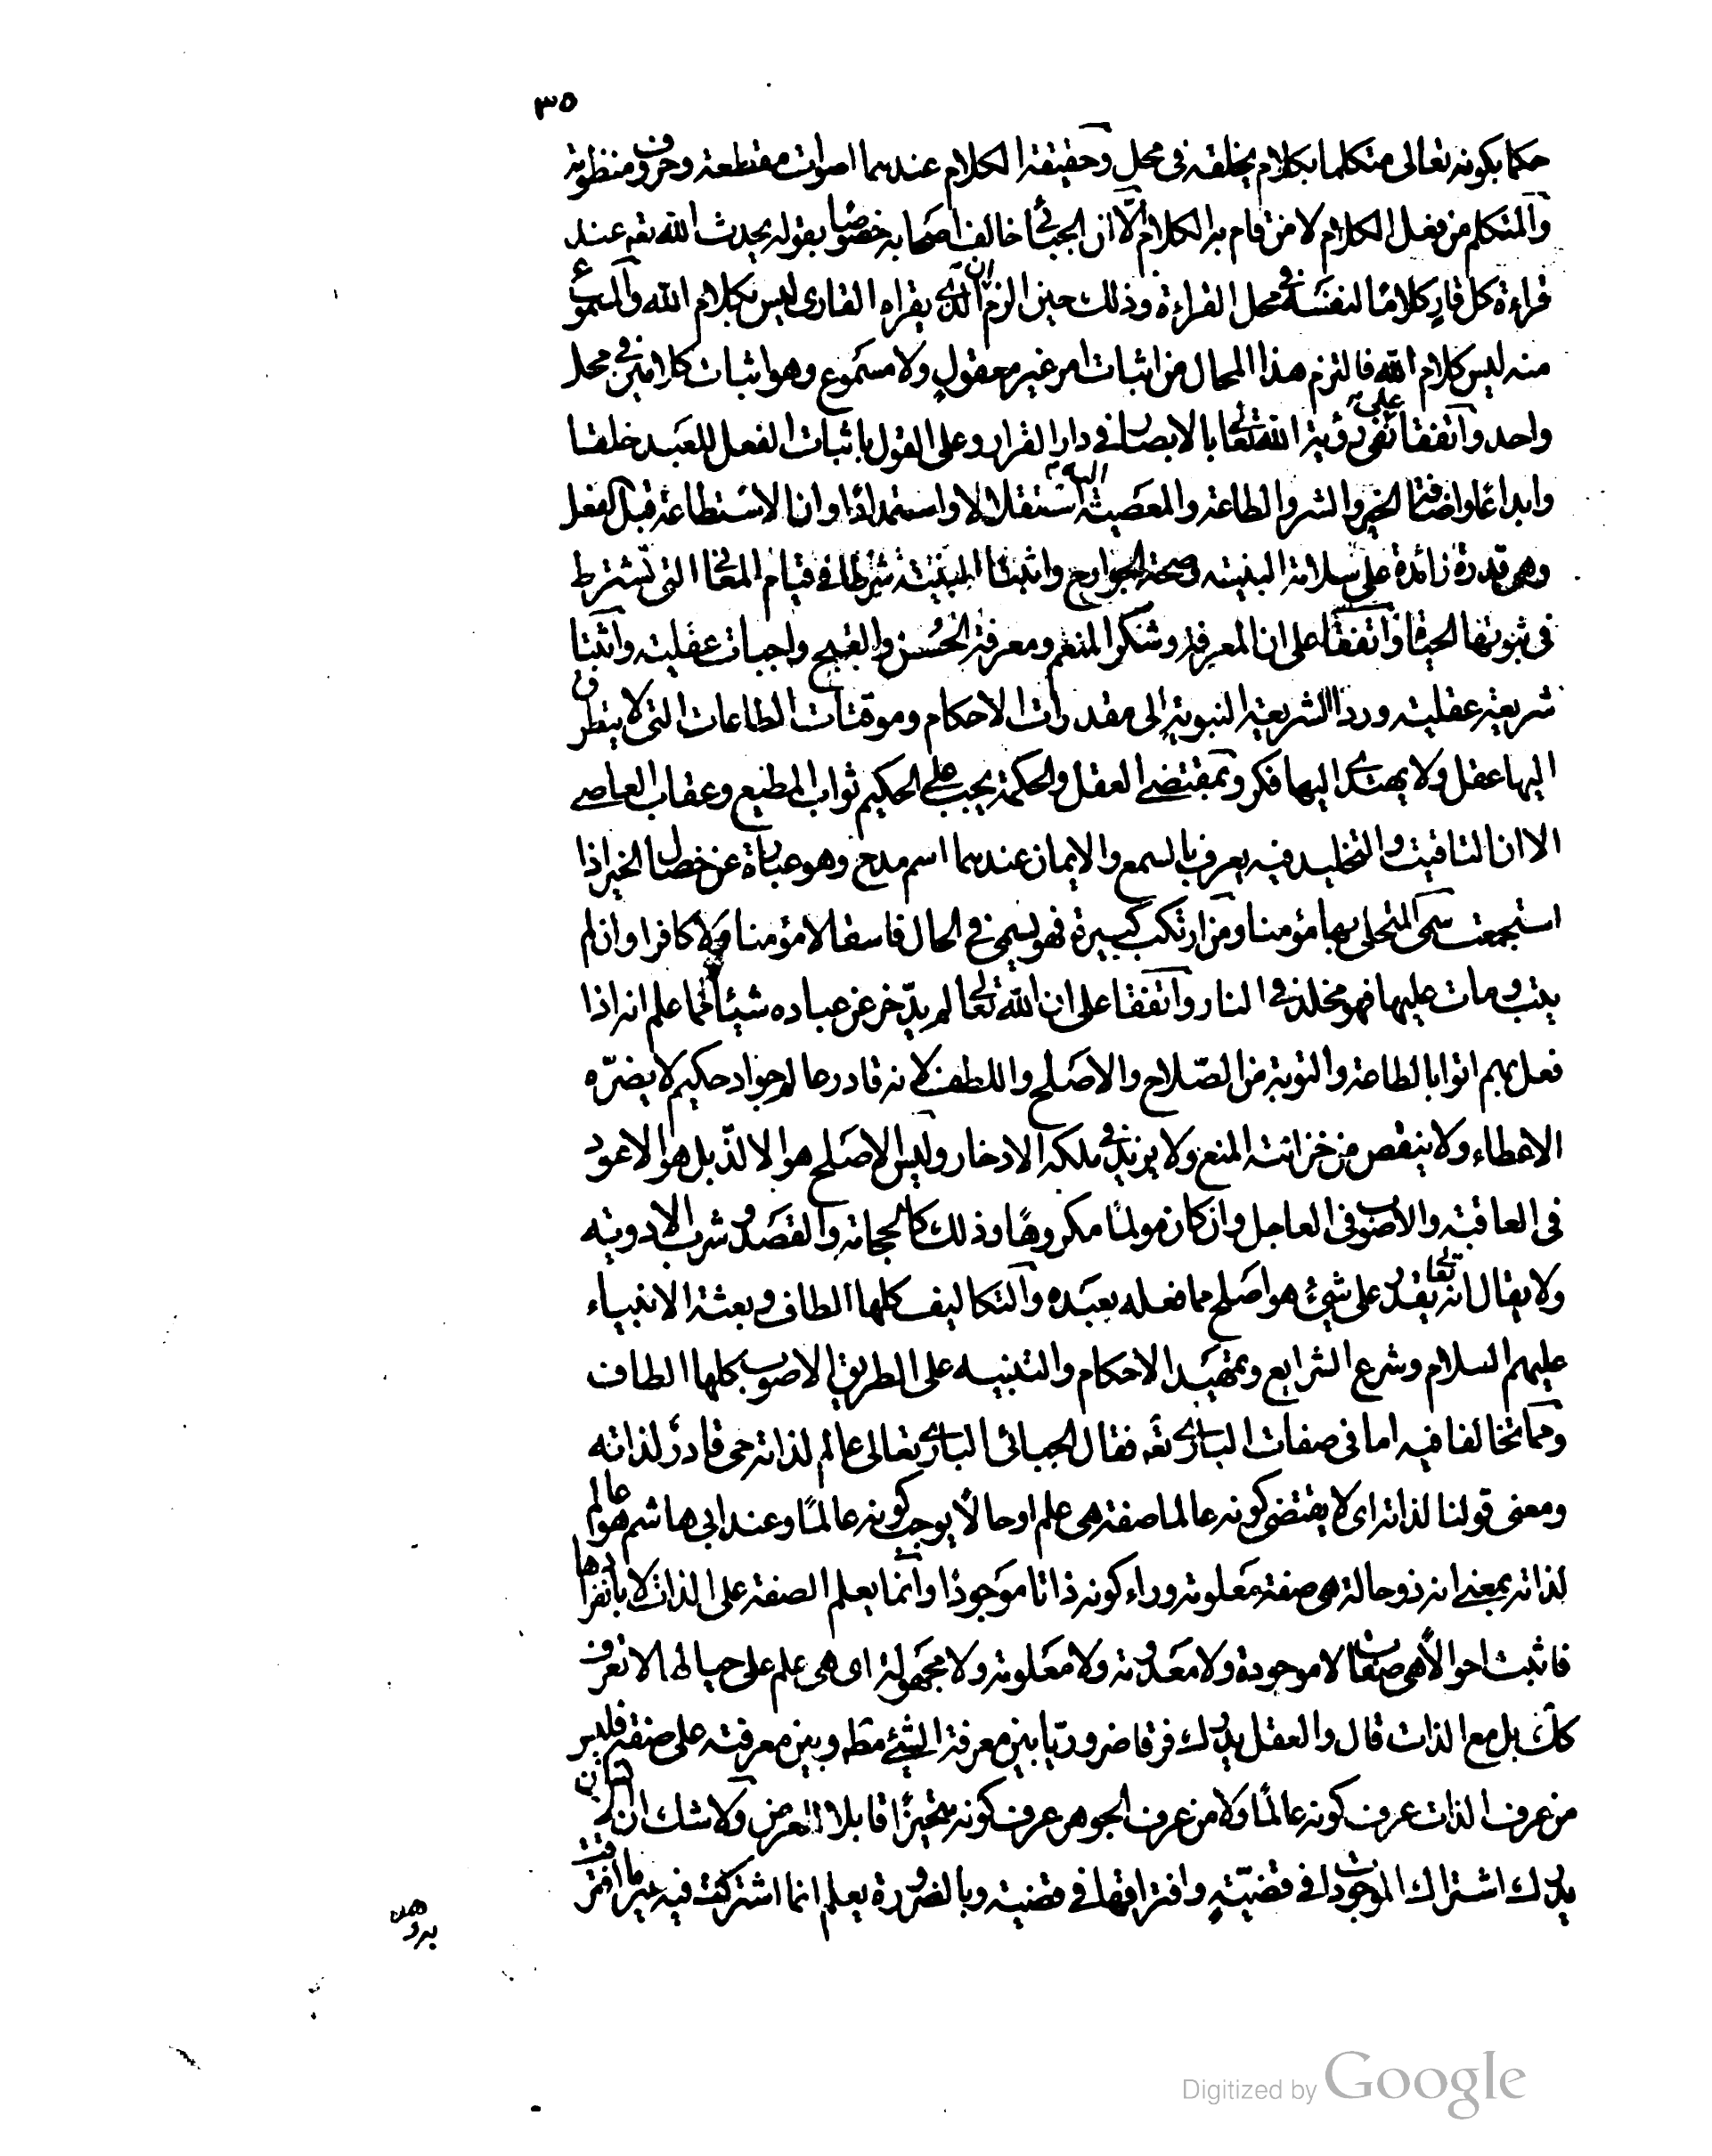 ٣٥
حكما بكونه تعالى متكلما بكلام يخلقه في محل وحقيقة الكلام عندهما اصوات مقطعة وحروف منظومة
والمتكلم من فعل الكلام لا من قام به الكلام الّا ان الجبائي خالف اصحابه خصوصا بقوله يحدث الله تعه عند
قراءة كل قارٍ كلامًا لنفسه في محل القراءة وذلك حين الزم ان الذي يقراه القاري ليس بكلام الله والمسموع
منه ليس كلام الله فالتزم هذا المحال من اثبات امر غير معقولٍ ولا مسموع وهو اثبات كلامين في محل
واحد واتفقا على نفي رؤية الله تعالى بالابصار في دار القرار وعلى القول باثبات الفعل للعبد خلقا
وابداعا واضافة الخير والشر والطاعة والمعصية اليه استقلالا واستبدادًا وان الاستطاعة قبل الفعل
وهي قدرة زائدة على سلامة البنية وصحة الجوارح واثبتا البنية شرطا في قيام المعاني التي تشترط
في ثبوتها الحيوة واتفقا على ان المعرفة وشكر المنعم ومعرفة الحُسن والقبيح واجبات عقلية واثبتا
شريعة عقلية وردا الشريعة النبوية الى مقدرات الاحكام وموقتات الطاعات التي لا يتطرق
اليها عقل ولا يهتدي اليها فكر وبمقتضى العقل والحكمة يجب على الحكيم ثواب المطيع وعقاب العاصي
الا ان التاقيت والتخليد فيه يعرف بالسمع والايمان عندهما اسم مدح وهو عبارة عن خصال الخير اذا
استجمعت سمي المتحلي بها مؤمنا ومن ارتكب كبيرة فهو يسمى في الحال فاسقا لا مؤمنا ولا كافرا وان لم
يتب ومات عليها فهو مخلد في النار واتفقا على ان الله تعالى لم يدّخر عن عباده شيئا مما علم انه اذا
فعل بهم اتوا بالطاعة والتوبة من الصّلاح والاصلح واللطف لانه قادر عالم جواد حكيم لا يضرّه
الاعطاء ولا ينقص من خزائنه المنع ولا يزيد في ملكه الادخار وليس الاصلح هو الالذّ بل هو الاعود
في العاقبة والاصوب في العاجل وان كان مولمًا مكروهًا وذلك كالحجامة والفصد وشرب الادوية
ولا يقال انه تعالى يقدر على شيء هو اصلح مما فعله بعبده والتكاليف كلها الطاف وبعثة الانبياء
عليهم السلام وشرع الشرايع وتمهيد الاحكام والتنبيه على الطريق الاصوب كلها الطاف
ومما تخالفا فيه اما في صفات الباري تعه فقال الجبائي الباري تعالى عالم لذاته حي قادرٌ لذاته
ومعنى قولنا لذاته اي لا يقتضي كونه عالما صفة هي علم او حالاً يوجب كونه عالمًا وعند ابي هاشم هو عالم
لذاته بمعنى انه ذو حالة هي صفة معلومة وراء كونه ذاتا موجودًا وانما يعلم الصفة على الذات لا بانفرادها
فاثبت احوالاً هي صفات لا موجودة ولا معدومة ولا معلومة ولا مجهولة اي هي علم على حيالها لا تعرف
كذلك بل مع الذات قال والعقل يدرك فرقا ضروريّا بين معرفة الشيء مطه وبين معرفته على صفة فليس
من عرف الذات عرف كونه عالمًا ولا من عرف الجوهر عرف كونه متحيزًا قابلا للعرض ولا شك ان الانسان
يدرك اشتراك الموجودات في قضيّةٍ وافتراقها في قضية وبالضرورة يعلم انما اشتركت فيه غير ما افترقت